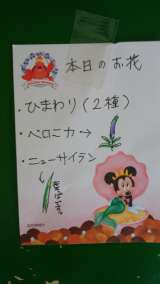 本日のお花
・ひまわり(2種)
・ベロニカ→
・ニューサイラン